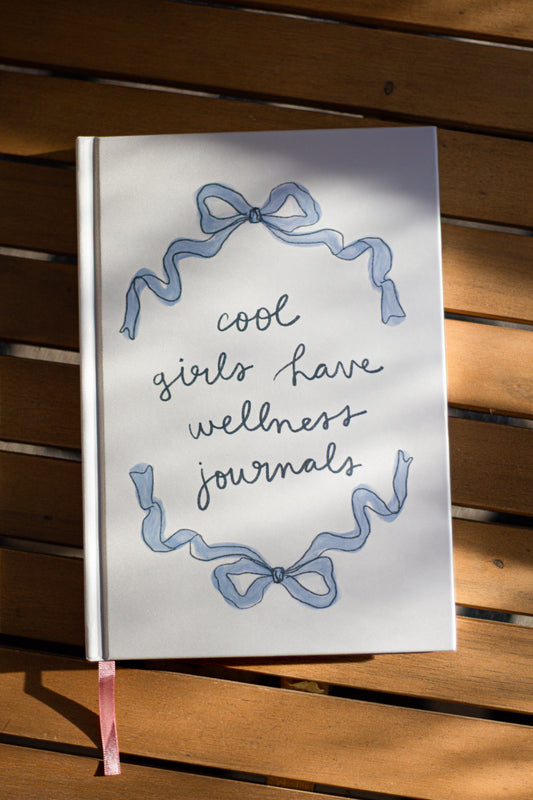 cool
girls have
wellness
journals